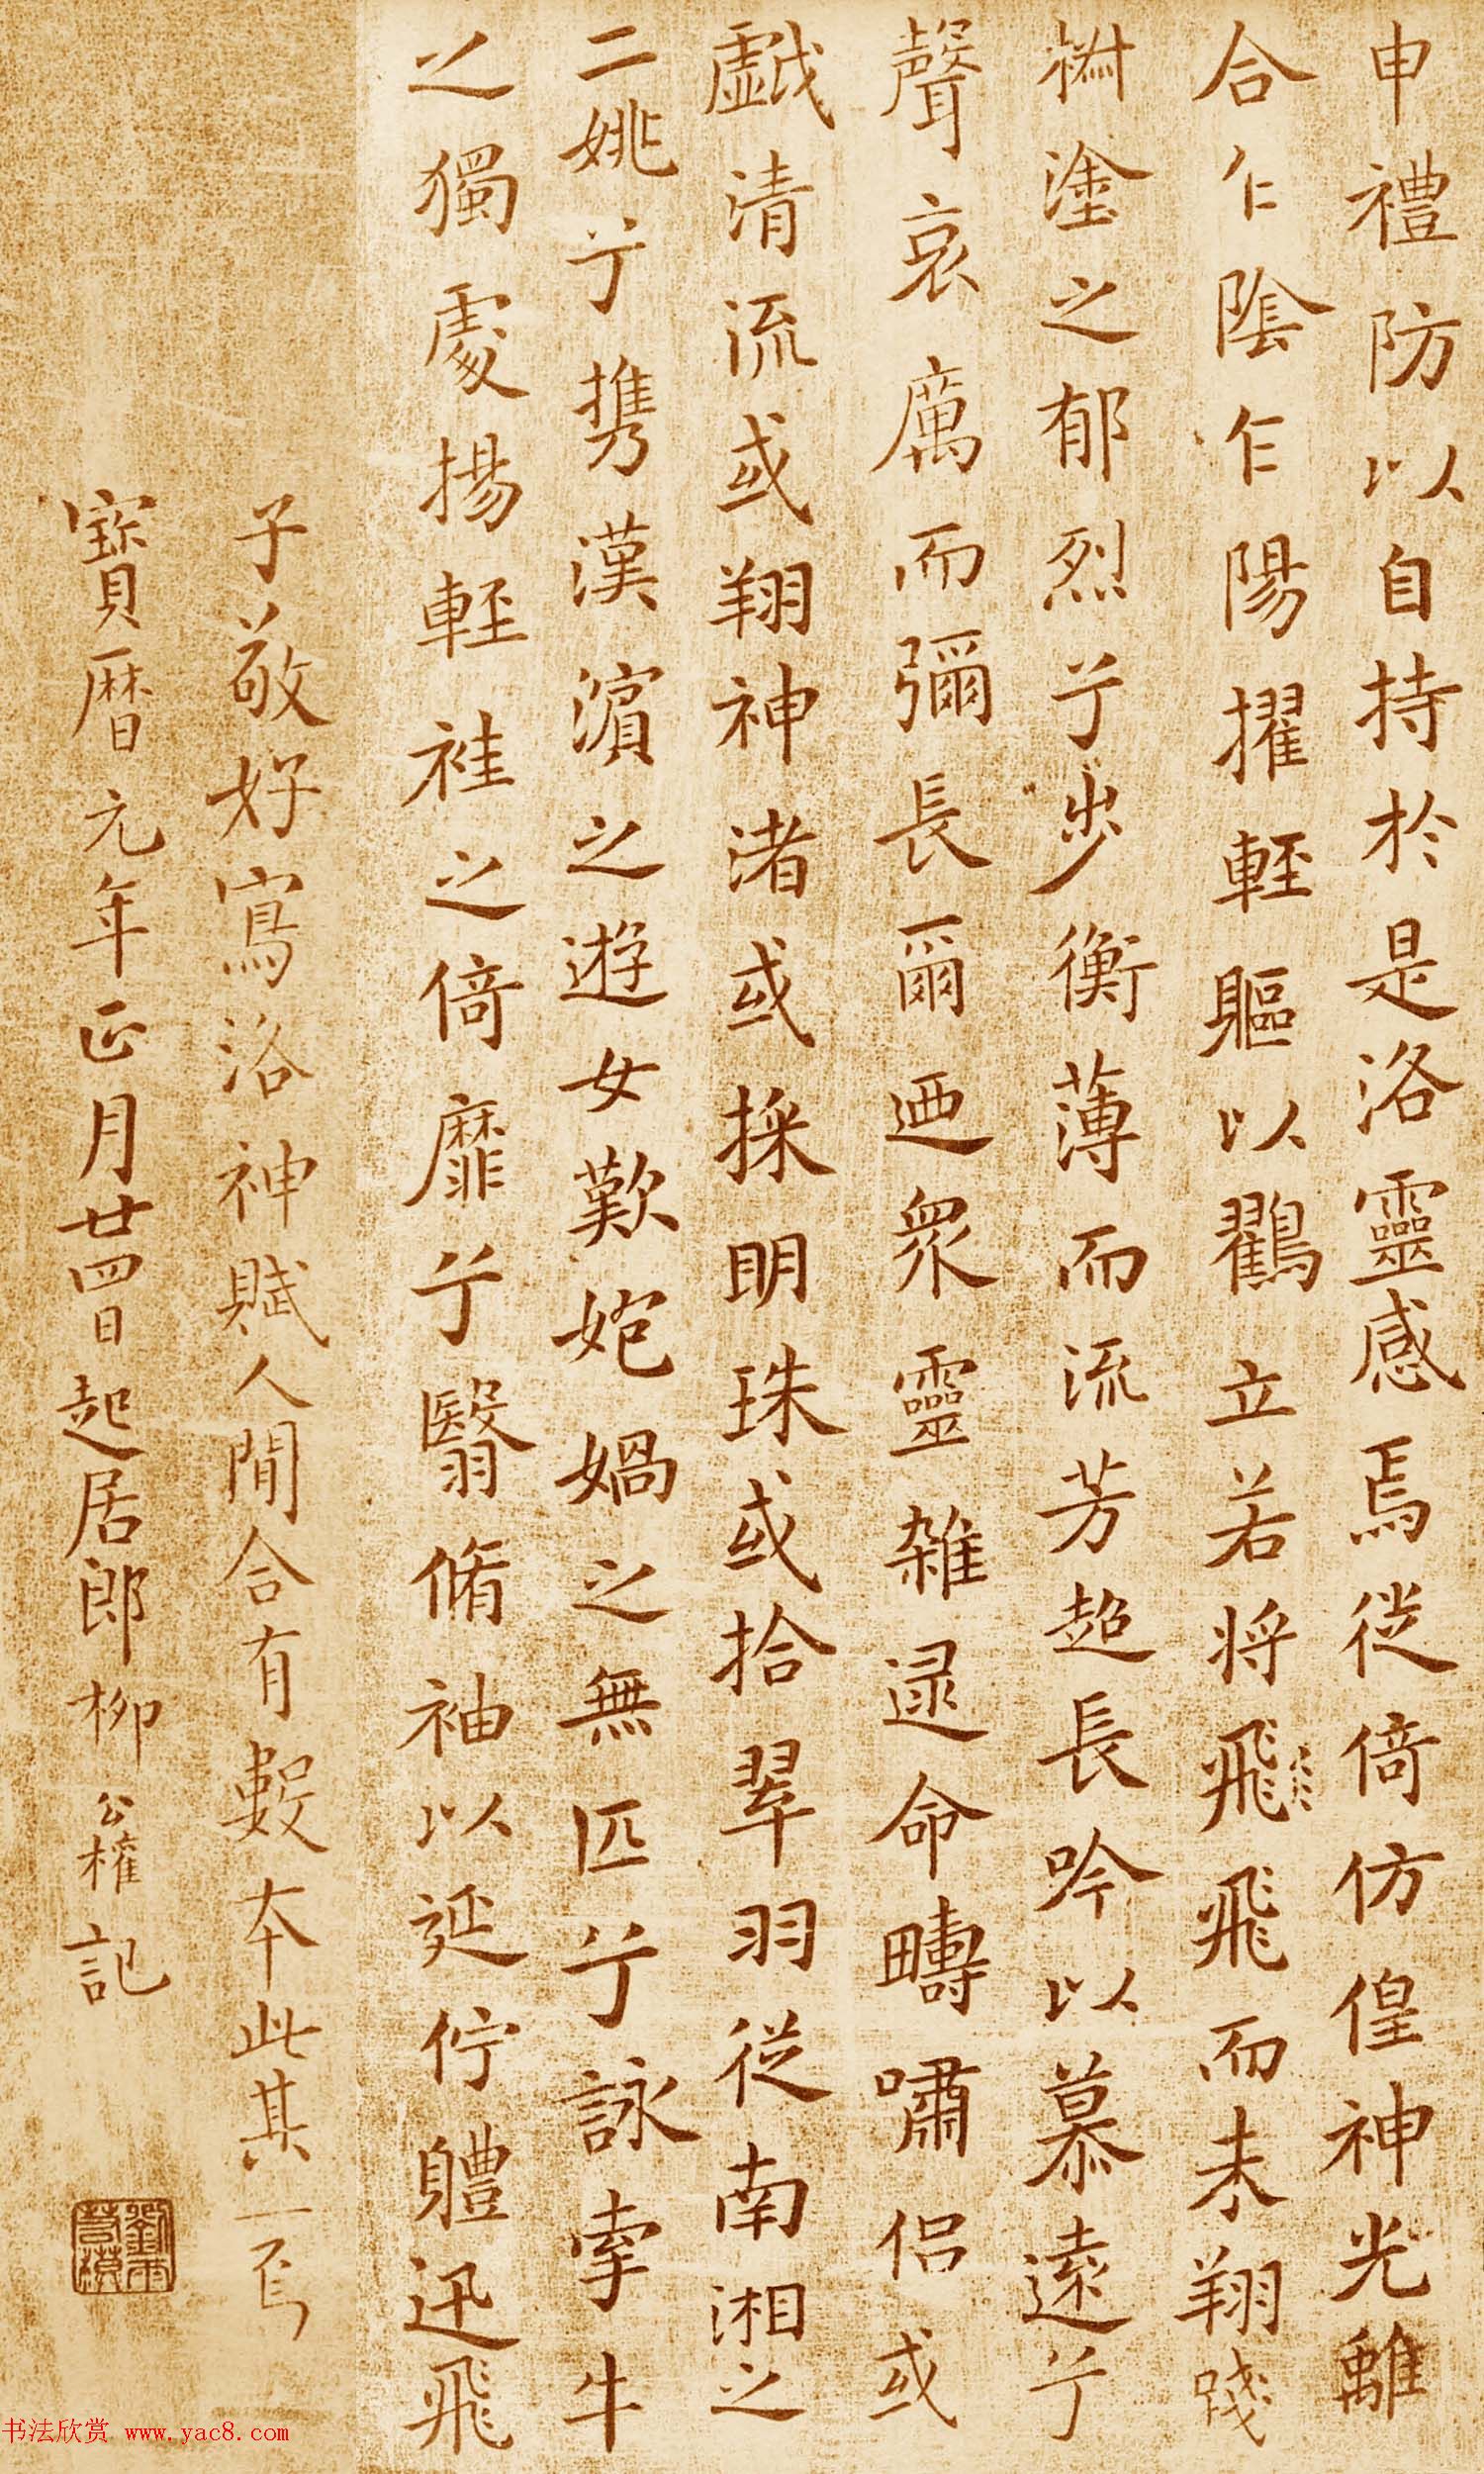 申禮防以自持於是洛靈感焉從倚仿偟神光離
合乍陰乍陽擢輕軀以鸖立若將飛飛而未翔踐
椒塗之郁烈兮步衡薄而流芳超長吟以慕遠兮
聲哀厲而彌長爾迺衆靈雜遝命疇嘯侶或
戯清流或翔神渚或採明珠或拾翠羽從南湘之
二姚兮携漢濱之遊女歎妑媧之無匹兮詠牽牛
之獨處揚輕袿之倚靡兮翳脩袖以延佇體迅飛
子敬好寫洛神賦人間合有數本此其一焉
寶曆元年正月廿四日起居郎柳公權記
书法欣赏 www.yac8.com